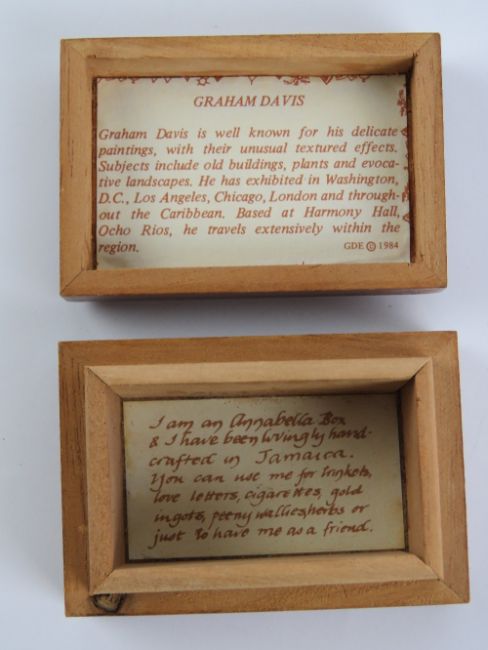 GRAHAM DAVIS
Graham Davis is well known for his delicate
paintings, with their unusual textured effects.
Subjects include old buildings, plants and evoca-
tive landscapes. He has exhibited in Washington,
D.C., Los Angeles, Chicago, London and through-
out the Caribbean. Based at Harmony Hall,
Ocho Rios, he travels extensively within the
region. GDE © 1984
I am an Annabella Box
& I have been lovingly hand-
crafted in Jamaica.
You can use me for trinkets,
love letters, cigarettes, gold
ingots, peeny wallies, herbs or
just to have me as a friend.